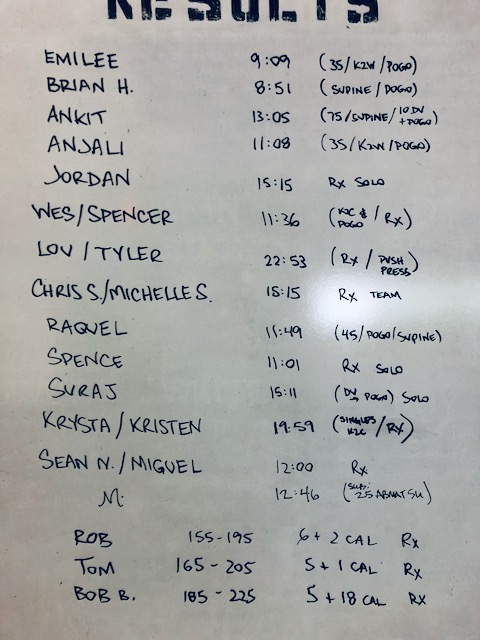 RESULTS
EMILEE 9:09 (35/K2W/POGO)
BRIAN H. 8:51 (SUPINE/POGO)
ANKIT 13:05 (75/SUPINE/10 DU + POGO)
ANJALI 11:08 (35/K2W/POGO)
JORDAN 15:15 Rx SOLO
WES/SPENCER 11:36 (K2C & POGO / Rx)
LOV/TYLER 22:53 (Rx / PUSH PRESS)
CHRIS S./MICHELLE S. 15:15 Rx TEAM
RAQUEL 11:49 (45/POGO/SUPINE)
SPENCE 11:01 Rx SOLO
SURAJ 15:11 (DU → POGO) SOLO
KRYSTA/KRISTEN 19:59 (SINGLES K2C / Rx)
SEAN N./MIGUEL 12:00 Rx
M. 12:46 (SUB: 25 ABMAT SU)
ROB 155-195 6+2 CAL Rx
TOM 165-205 5+1 CAL Rx
BOB B. 185-225 5+18 CAL Rx